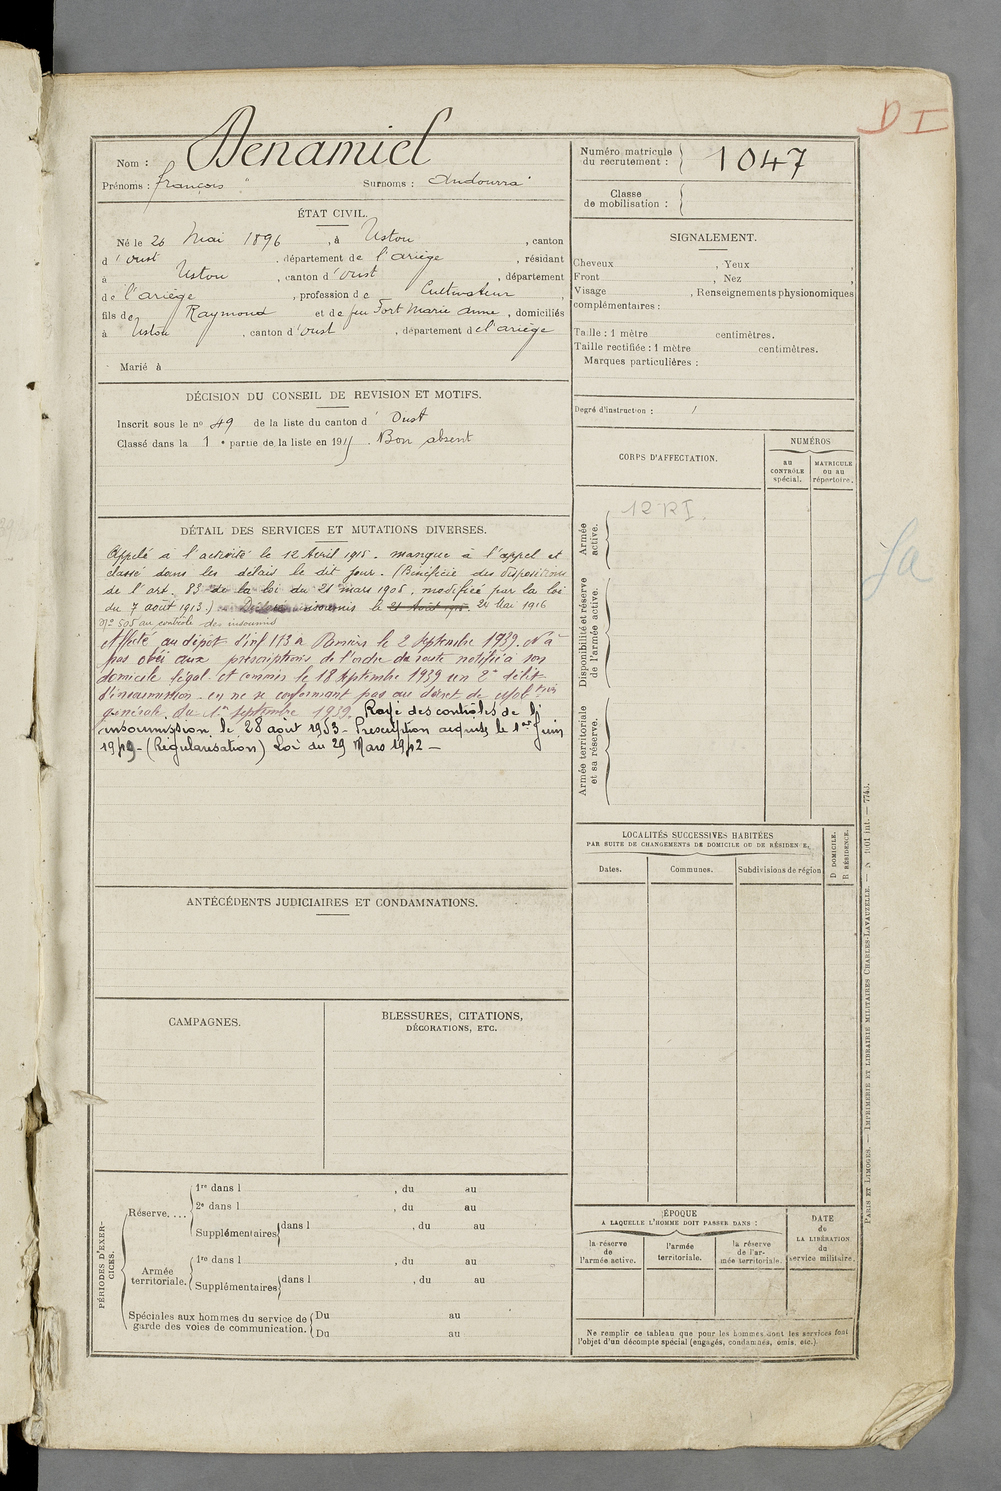 D I
Nom : Denamiel
Prénoms : François Surnoms : Andourra
Numéro matricule du recrutement : 1047
Classe de mobilisation :
ÉTAT CIVIL.
Né le 26 Mai 1896, à Ustou, canton
d'Oust, département de l'ariège, résidant
à Ustou, canton d'Oust, département
de l'ariège, profession de Cultivateur,
fils de Raymond et de feu Fort Marie Anne, domiciliés
à Ustou, canton d'Oust, département de l'ariège
Marié à
SIGNALEMENT.
Cheveux , Yeux ,
Front , Nez ,
Visage , Renseignements physionomiques
complémentaires :
Taille : 1 mètre centimètres.
Taille rectifiée : 1 mètre centimètres.
Marques particulières :
Degré d'instruction : /
DÉCISION DU CONSEIL DE REVISION ET MOTIFS.
Inscrit sous le nº 49 de la liste du canton d' Oust
Classé dans la 1e partie de la liste en 1915. Bon absent
DÉTAIL DES SERVICES ET MUTATIONS DIVERSES.
Appelé à l'activité le 12 Avril 1915. manque à l'appel et
classé dans les délais le dit jour. (Bénéficie des dispositions
de l'art. 83 de la loi du 21 mars 1905, modifiée par la loi
du 7 août 1913.) Déclaré insoumis le 24 Mai 1916
Nº 505 au contrôle des insoumis
Affecté au dépôt d'inf 173 à Pamiers le 2 septembre 1939. N'a
pas obéi aux prescriptions de l'ordre de route notifié à son
domicile légal et commis le 18 septembre 1939 un 2e délit
d'insoumission en ne se conformant pas au décret de mobtion
générale du 1er septembre 1939. Rayé des contrôles de l'
insoumission, le 28 août 1953 - Prescription acquise le 1er Juin
1949 - (Régularisation) Loi du 29 Mars 1942 -
CORPS D'AFFECTATION.
NUMÉROS
au CONTRÔLE spécial.
MATRICULE ou au répertoire.
Armée active.
12 RI.
Disponibilité et réserve de l'armée active.
Armée territoriale et sa réserve.
LOCALITÉS SUCCESSIVES HABITÉES
PAR SUITE DE CHANGEMENTS DE DOMICILE OU DE RÉSIDENCE.
Dates.
Communes.
Subdivisions de région
D. DOMICILE.
R. RÉSIDENCE.
ANTÉCÉDENTS JUDICIAIRES ET CONDAMNATIONS.
CAMPAGNES.
BLESSURES, CITATIONS,
DÉCORATIONS, ETC.
PÉRIODES D'EXERCICES.
Réserve....
1re dans l , du au
2e dans l , du au
Supplémentaires dans l , du au
Armée territoriale.
1re dans l , du au
Supplémentaires dans l , du au
Spéciales aux hommes du service de garde des voies de communication.
Du au
Du au
ÉPOQUE
A LAQUELLE L'HOMME DOIT PASSER DANS :
la réserve de l'armée active.
l'armée territoriale.
la réserve de l'armée territoriale.
DATE de LA LIBÉRATION du service militaire.
Ne remplir ce tableau que pour les hommes dont les services font
l'objet d'un décompte spécial (engagés, condamnés, omis, etc.).
PARIS ET LIMOGES. — IMPRIMERIE ET LIBRAIRIE MILITAIRES CHARLES-LAVAUZELLE.